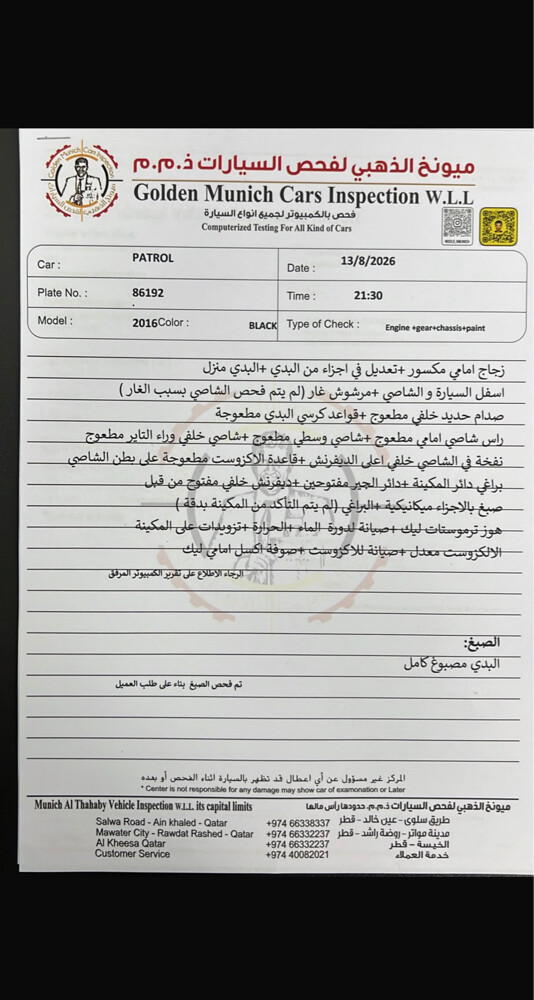 ميونخ الذهبي لفحص السيارات ذ.م.م
Golden Munich Cars Inspection W.L.L
فحص بالكمبيوتر لجميع انواع السيارة
Computerized Testing For All Kind of Cars
Car : PATROL
Date : 13/8/2026
Plate No. : 86192
Time : 21:30
Model : 2016 Color : BLACK
Type of Check : Engine +gear+chassis+paint
زجاج امامي مكسور +تعديل في اجزاء من البدي +البدي منزل
اسفل السيارة و الشاصي +مرشوش غار (لم يتم فحص الشاصي بسبب الغار )
صدام حديد خلفي مطعوج +قواعد كرسي البدي مطعوجة
راس شاصي امامي مطعوج +شاصي وسطي مطعوج +شاصي خلفي وراء التاير مطعوج
نفخة في الشاصي خلفي اعلى الديفرنش +قاعدة الاكزوست مطعوجة على بطن الشاصي
براغي دائر المكينة +دائر الجير مفتوحين +ديفرنش خلفي مفتوح من قبل
صبغ بالاجزاء ميكانيكية +البراغي (لم يتم التأكد من المكينة بدقة )
هوز ترموستات ليك +صيانة لدورة الماء +الحرارة +تزويدات على المكينة
الالكزوست معدل +صيانة للاكزوست +صوفة اكسل امامي ليك
الرجاء الاطلاع على تقرير الكمبيوتر المرفق
الصبغ:
البدي مصبوغ كامل
تم فحص الصبغ بناء على طلب العميل
المركز غير مسؤول عن أي اعطال قد تظهر بالسيارة اثناء الفحص أو بعده
* Center is not responsible for any damage may show car of examonation or Later
Munich Al Thahaby Vehicle Inspection W.L.L. its capital limits
ميونخ الذهبي لفحص السيارات ذ.م.م. حدودها رأس مالها
Salwa Road - Ain khaled - Qatar +974 66338337 طريق سلوى - عين خالد - قطر
Mawater City - Rawdat Rashed - Qatar +974 66332237 مدينة مواتر - روضة راشد - قطر
Al Kheesa Qatar +974 66332237 الخيسة - قطر
Customer Service +974 40082021 خدمة العملاء